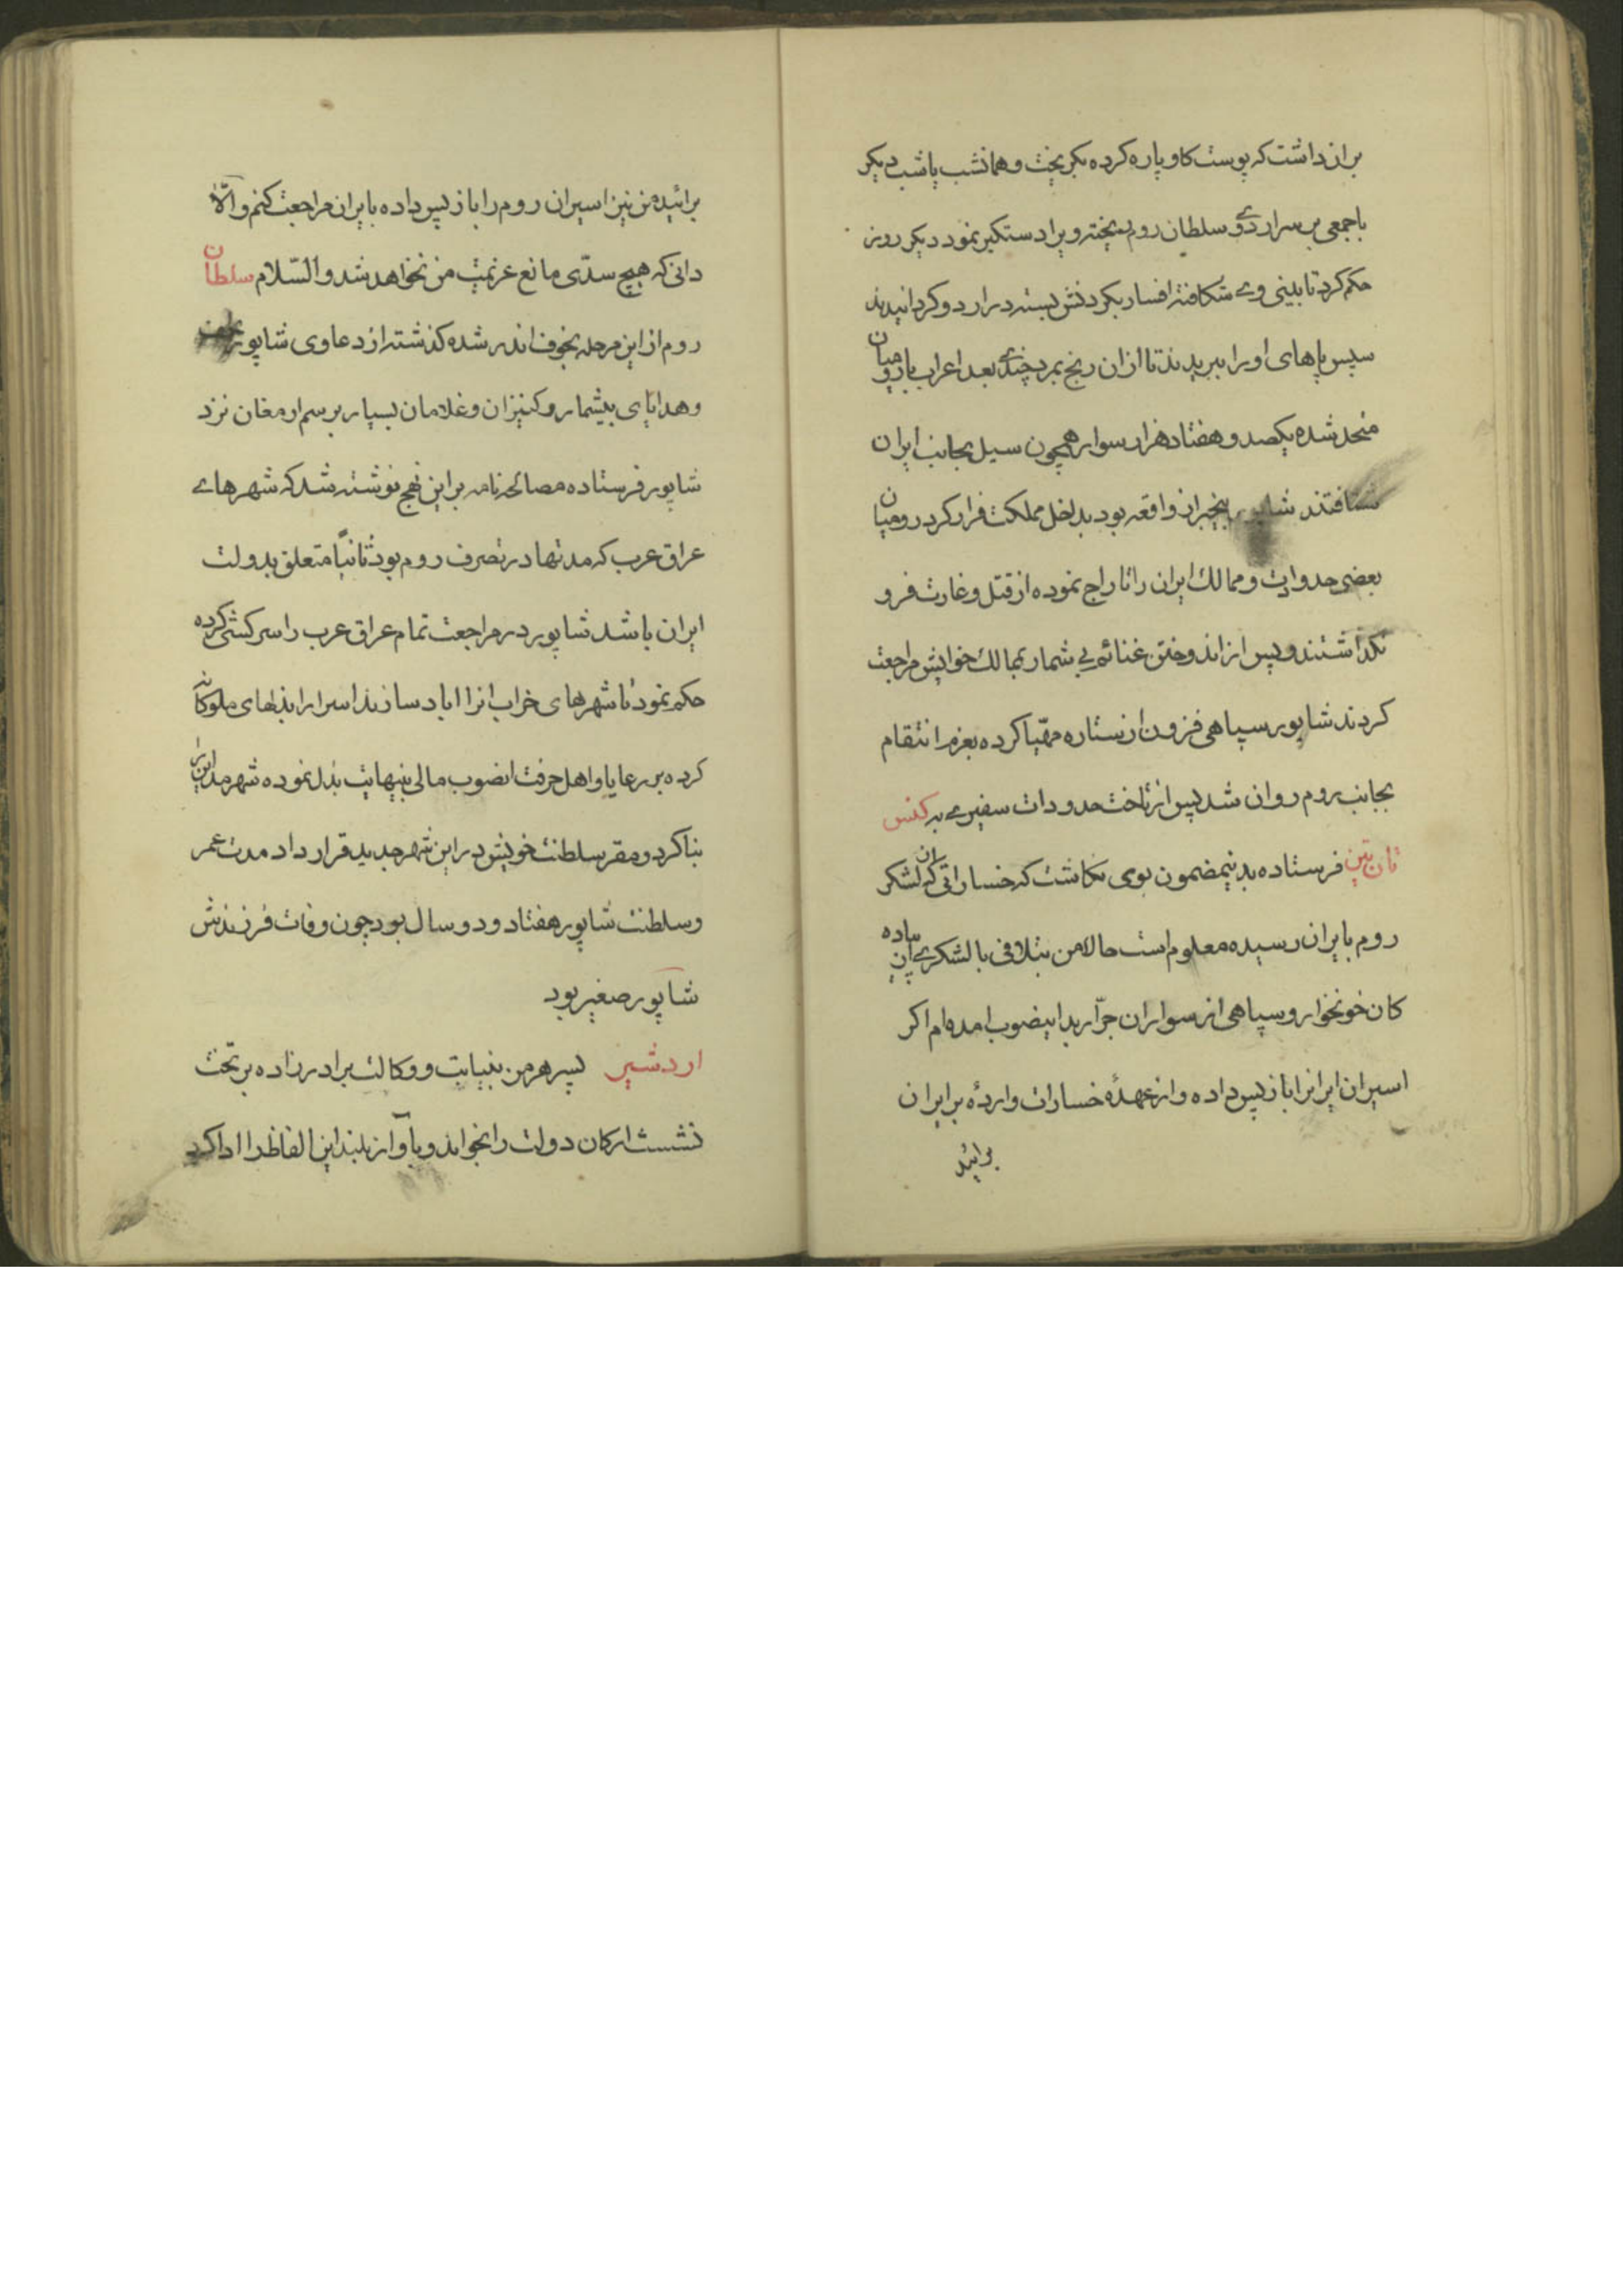 بران داشت که پوست کاو پاره کرده بکریخت و همانشب یا شب دیکر
با جمعی بر سرار دوے سلطان روم ریخته ویرا دستکیر نمود دیکر روز
حکم کرد تا بینی وے شکافته افسار بکردنش بسته در اردو کردانیدند
سپس پاهای او را ببریدند تا ازان رنج بمرد چندے بعد اعراب با رومیان
متحد شده یکصد و هفتاد هزار سوار همچون سیل بجانب ایران
شتافتند شاپور بیخبر از واقعه بود بداخل مملکت فرار کرد رومیان
بعضی حدودات و ممالک ایران را تاراج نموده از قتل و غارت فرو
نکذاشتند و پس از اندوختن غنائم بی شمار بممالک خوایش مراجعت
کردند شاپور سپاهی فزون از ستاره مهیّا کرده بعزم انتقام
بجانب روم روان شد پس از تاخت حدودات سفیرے به کنس
تان تین فرستاده بدینمضمون بوی نکاشت که خساراتی که از لشکر
روم بایران رسیده معلوم است حالا من بتلافی با لشکرے از پیاده
کان خونخوار و سپاهی از سواران جرّار بدینصوب امده ام اکر
اسیران ایرانرا باز پس داده و از عهدهٔ خسارات واردهٔ بر ایران
برائید
برائید من نیز اسیران روم را باز پس داده بایران مراجعت کنم و الّا
دانی که هیچ سدّی مانع عزیمت من نخواهد شد والسّلام سلطان
روم از این مرحله بخوف اندر شده کذشته از دعاوی شاپور
و هدایای بیشمار و کنیزان و غلامان بسیار برسم ارمغان نزد
شاپور فرستاده مصالحه نامه براین نهج نوشته شد که شهرهاے
عراق عرب که مدتها در تصرف روم بود ثانیاً متعلق بدولت
ایران باشد شاپور در مراجعت تمام عراق عرب را سرکشی کرده
حکم نمود تا شهرهای خراب انرا اباد سازند اسرا را بذلهای ملوکانه
کرده بر رعایا و اهل حرفت انصوب مالی بینهایت بذل نموده شهر مداین را
بنا کرد و مقر سلطنت خویش در این شهر جدید قرار داد مدت عمر
و سلطنت شاپور هفتاد و دو سال بود چون وفات فرزندش
شاپور صغیر بود
اردشیر پسر هرمز بنیابت و وکالت برادر زاده بر تخت
نشست ارکان دولت را بخواند و با آواز بلند این الفاظ را ادا کرد